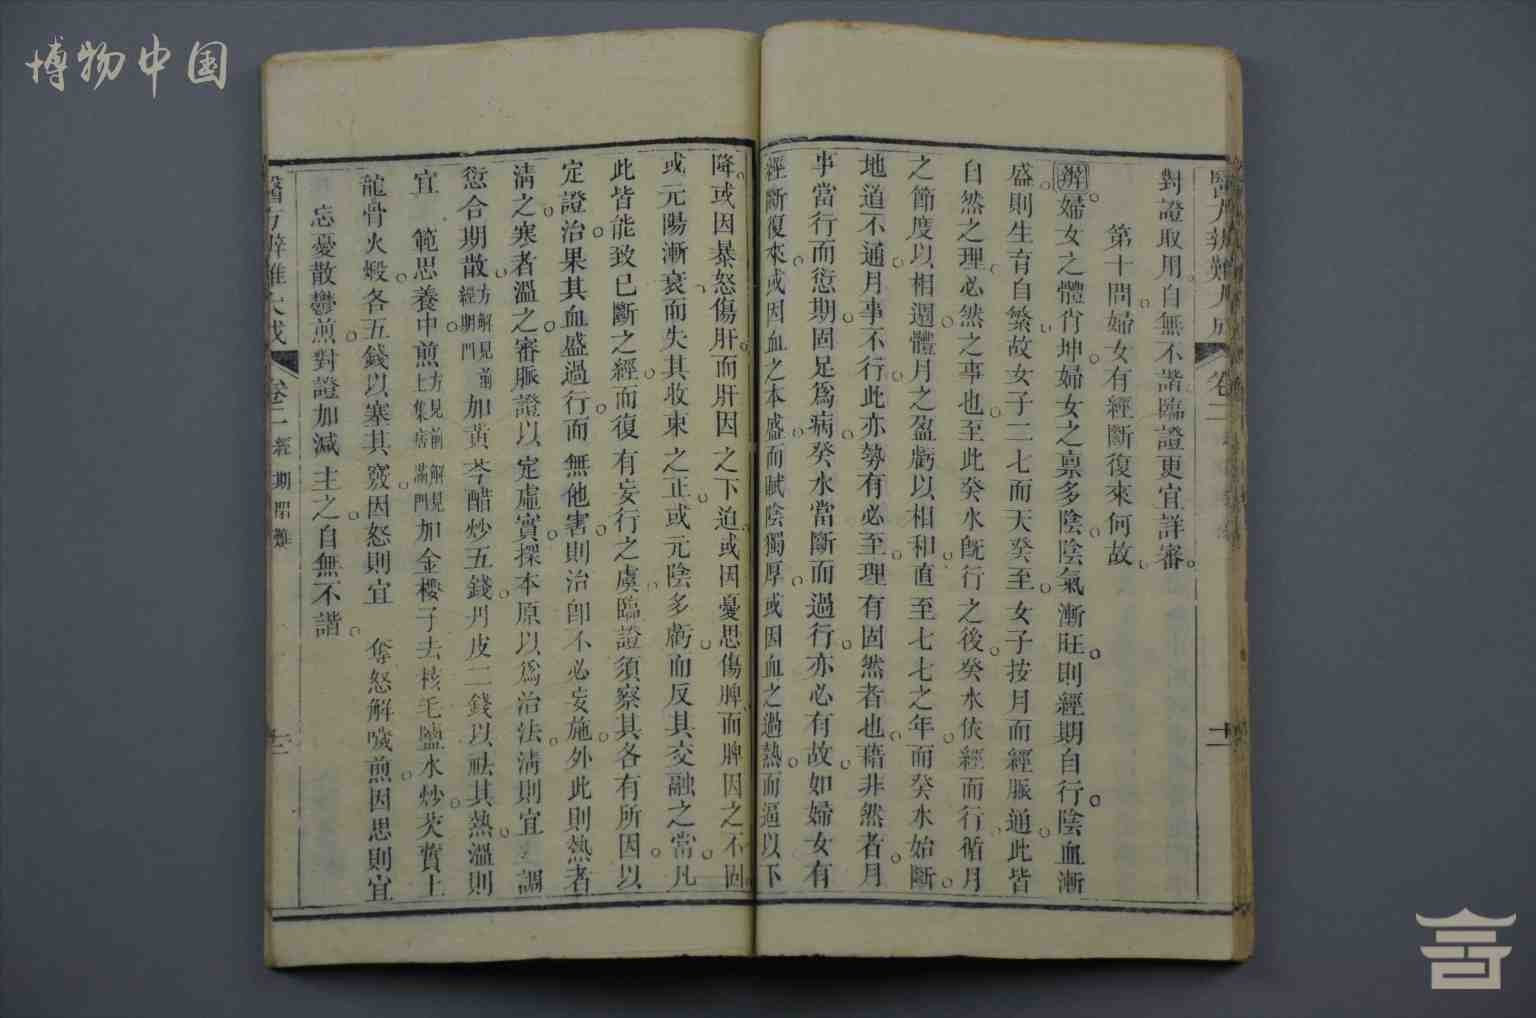 博物中国
對證取用自無不諧臨證更宜詳審
第十問婦女有經斷復來何故
辨婦女之體肖坤婦女之稟多陰陰氣漸旺則經期自行陰血漸
盛則生育自繁故女子二七而天癸至女子按月而經脈通此皆
自然之理必然之事也至此癸水旣行之後癸水依經而行循月
之節度以相週體月之盈虧以相和直至七七之年而癸水始斷
地道不通月事不行此亦勢有必至理有固然者也藉非然者月
事當行而愆期固足爲病癸水當斷而過行亦必有故如婦女有
經斷復來或因血之本盛而賦陰獨厚或因血之過熱而逼以下
降或因暴怒傷肝而肝因之下迫或因憂思傷脾而脾因之不固
或元陽漸衰而失其收束之正或元陰多虧而反其交融之當凡
此皆能致已斷之經而復有妄行之虞臨證須察其各有所因以
定證治果其血盛過行而無他害則治卽不必妄施外此則熱者
淸之寒者溫之審脈證以定虛實探本原以爲治法淸則宜調
愆合期散方解見前經期門加黃芩醋炒五錢丹皮二錢以祛其熱溫則
宜範思養中煎方見前上集痞滿門解見加金櫻子去核毛鹽水炒芡實土
龍骨火煅各五錢以塞其竅因怒則宜奪怒解噦煎因思則宜
忘憂散鬱煎對證加減主之自無不諧
醫方辨難大成 卷二 經期門類